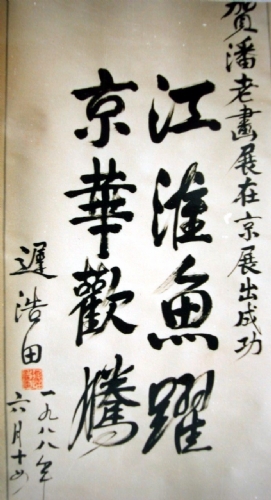 賀潘老畫展在京展出成功
江淮魚躍
京華歡騰
遲浩田
一九八八年
六月十日